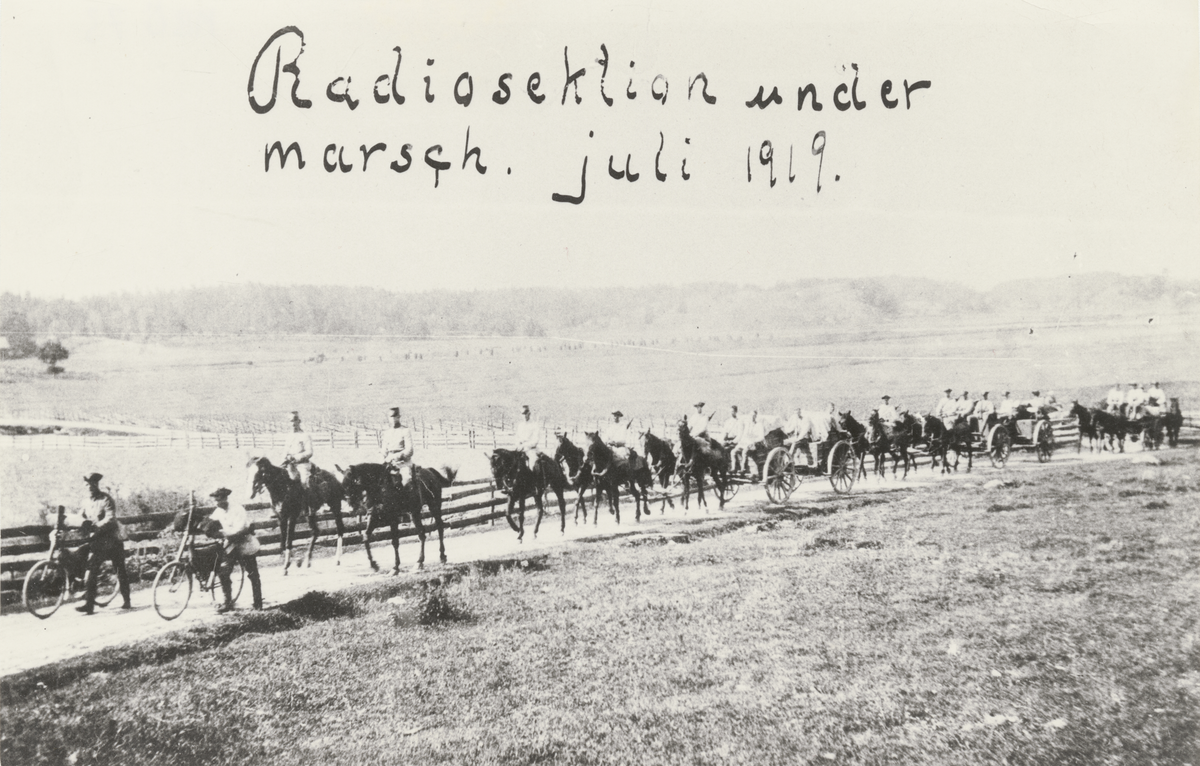 Radiosektion under
marsch. juli 1919.